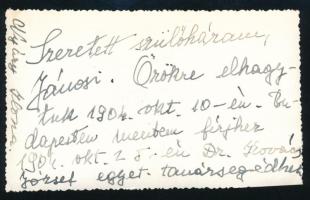 Szeretett szülőházam,
Jánosi. Örökre elhagy-
tuk 1904. okt. 10-én. Bu-
dapesten mentem férjhez
190 . okt. 28-én Dr. Kovács
József egyet. tanársegédhez